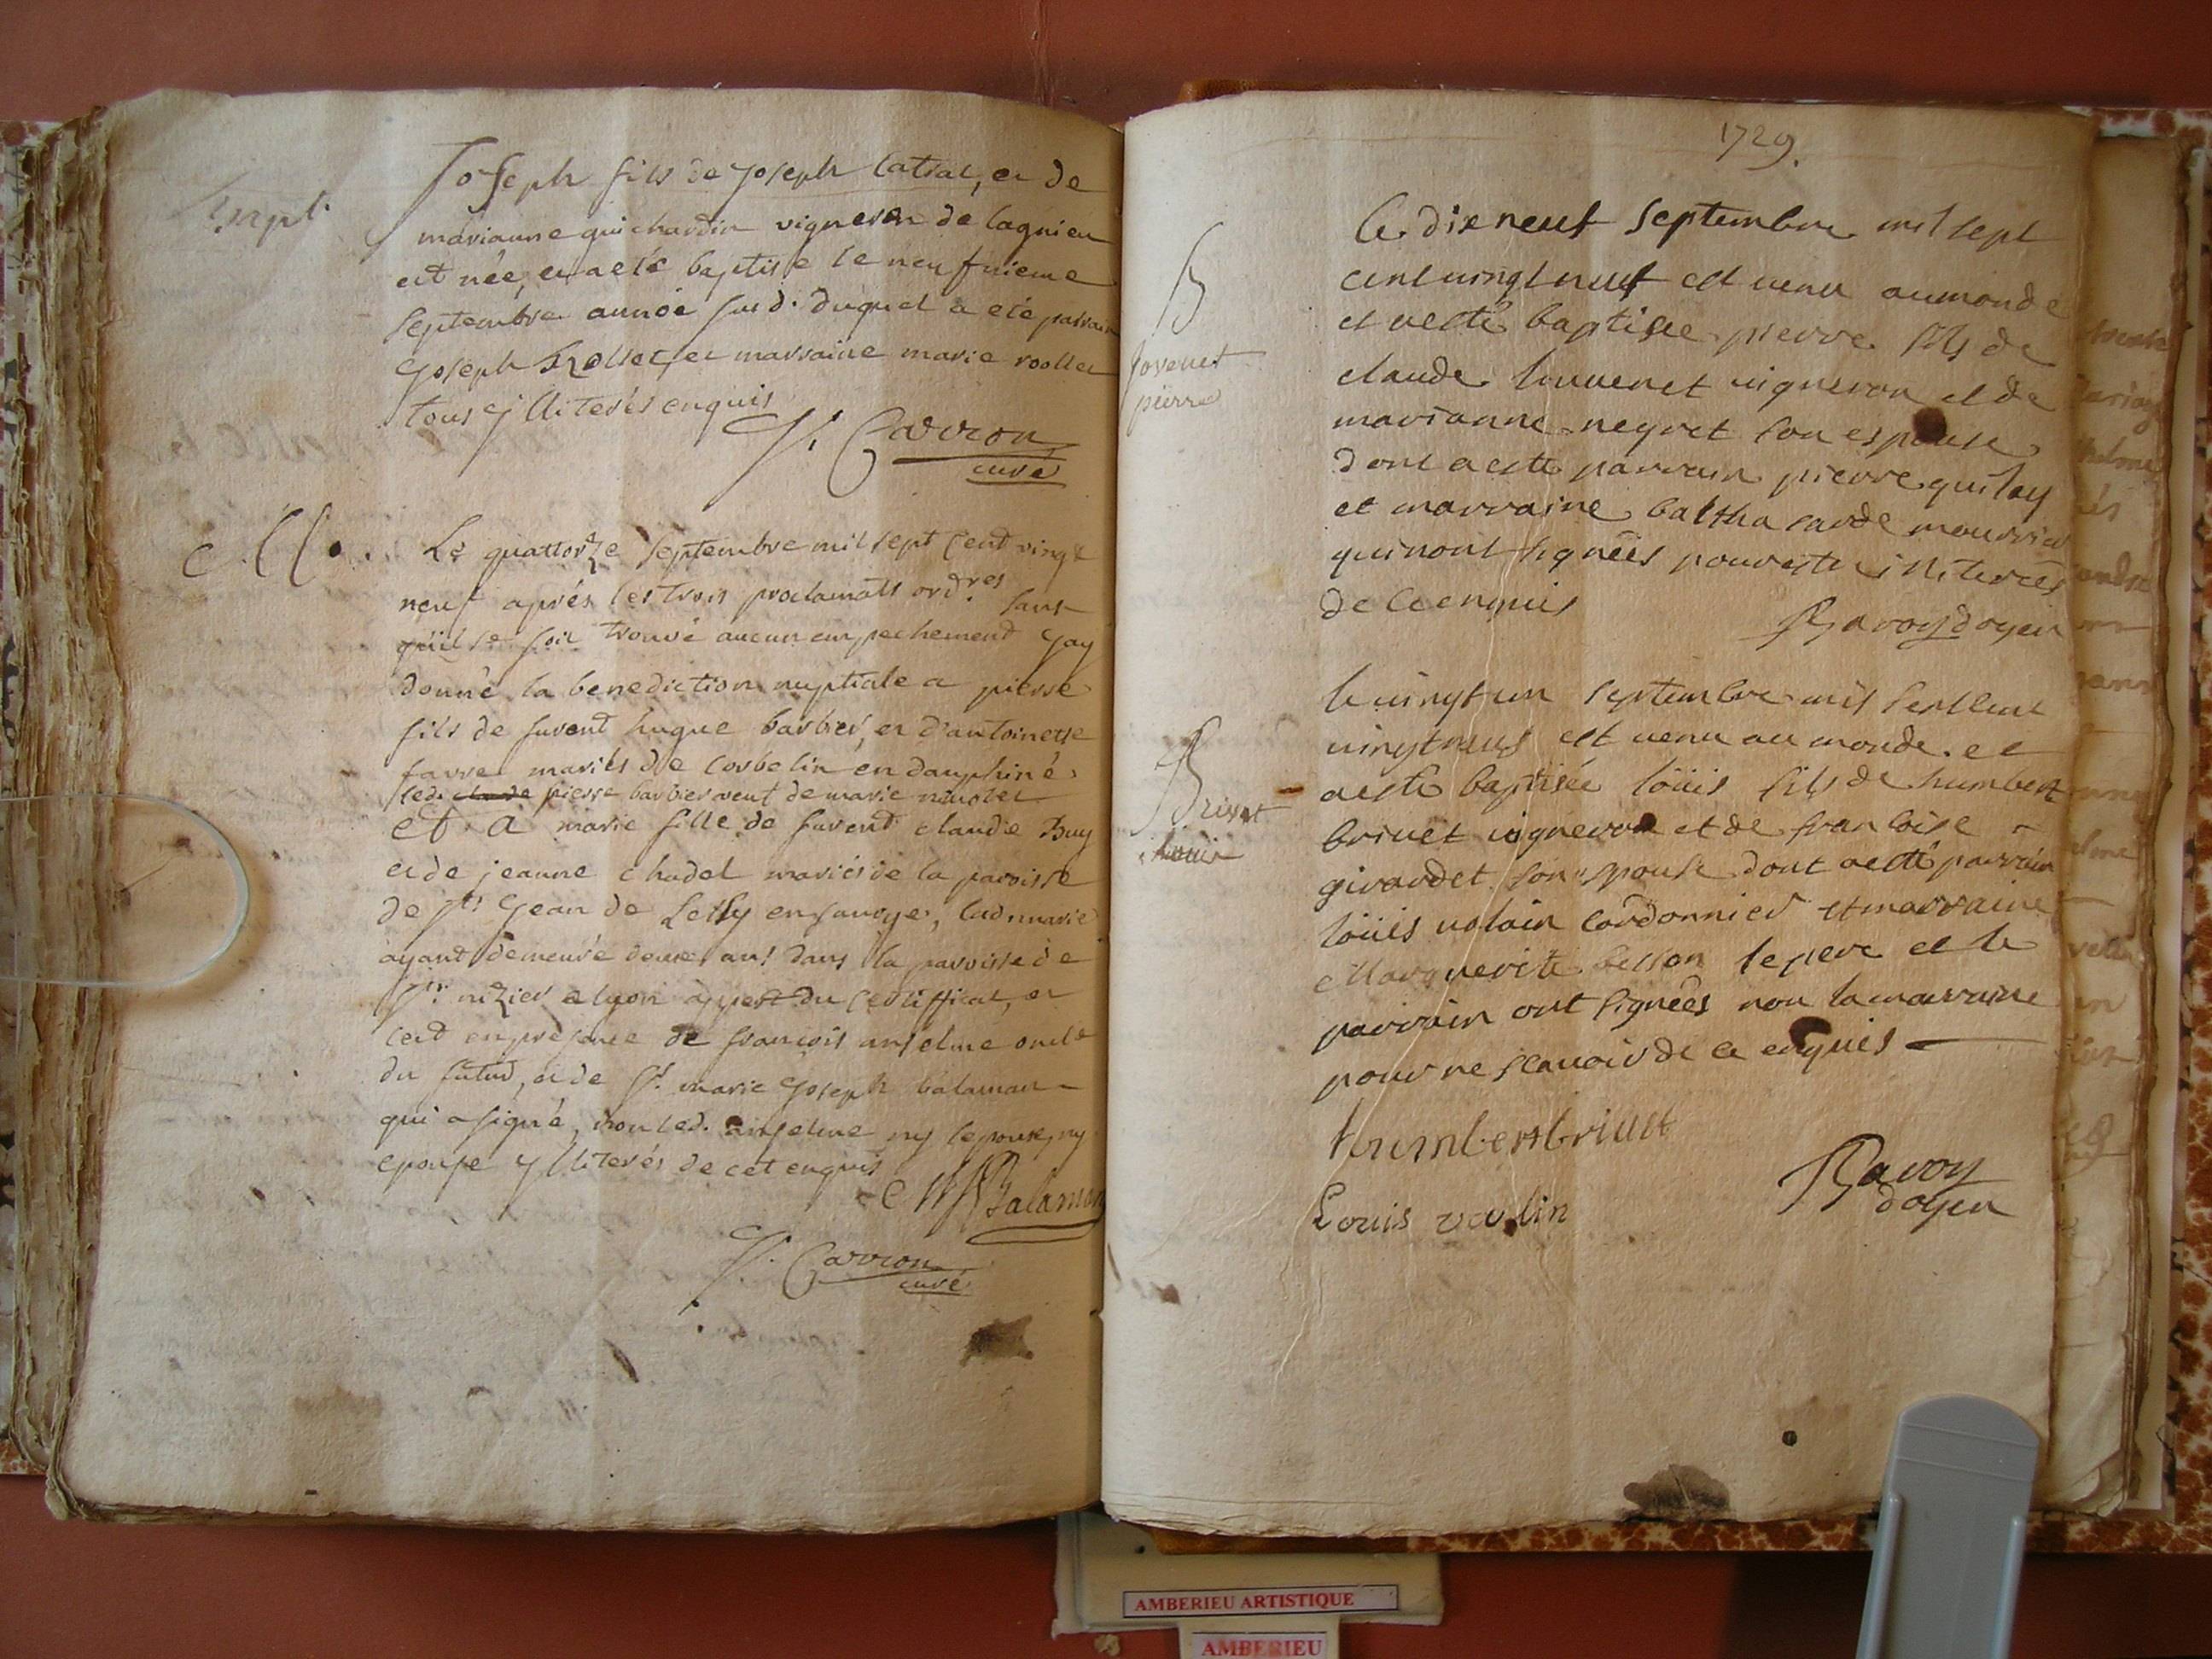 bapt.
Joseph fils de Joseph Catral, et de
marianne quichardin vigneron de lagnieu
est née, et a eté baptise le neufuieme
septembre année susd. duquel a eté parrain
Joseph Rollet, et marraine marie roollet
tous jlliterés enquis
Carron
curé
M.
Le quattorze septembre mil sept cent vingt
neuf aprés les trois proclamats ord.res sans
qu'il se soit trouvé aucun empechement jay
donné la benediction nuptiale a pierre
fils de furent hugue barbier, et d'antoinette
favre mariés de corbelin en dauphiné
led. pierre barbier veuf de marie
et a marie fille de furent claude Buy
et de jeanne chadel mariés de la paroisse
de st Jean de en savoye, lad. marie
ayant demeuré deux ans dans la parroisse de
st. nizier a lyon appert du certifficat, et
ce en presence de françois anselme oncle
du futur, et de sr. marie Joseph balaman
qui a signé, non led. anselme ny lepoux, ny
epouse jlliterés de cet enquis
M J Balaman
Carron
curé
1729.
B
Jovenet
pierre
Le dix neuf septembre mil sept
cent vingt neuf est venu au monde
et a esté baptisée pierre fils de
claude Iouuenet uigneron et de
marianne neyret son espouse
dont a esté parrain pierre quilay
et marraine balthasarde mourier
qui nont signées pour estre illiterées
de ce enquis
Ravoy doyen
B
Brivet
louis
le uingt un septembre mil sept cent
uingt neuf est uenu au monde et
a esté baptisée loüis fils de humbert
briuet uigneron et de francoise
girardet son espouse dont a esté parrain
loüis uolain cordonnier et marraine
Marguerite besson le pere et le
parrain ont signées non la marraine
pour ne scauoir de ce enquis
humbert briuet
Louis volin
Ravoy
doyen
AMBERIEU ARTISTIQUE
AMBERIEU